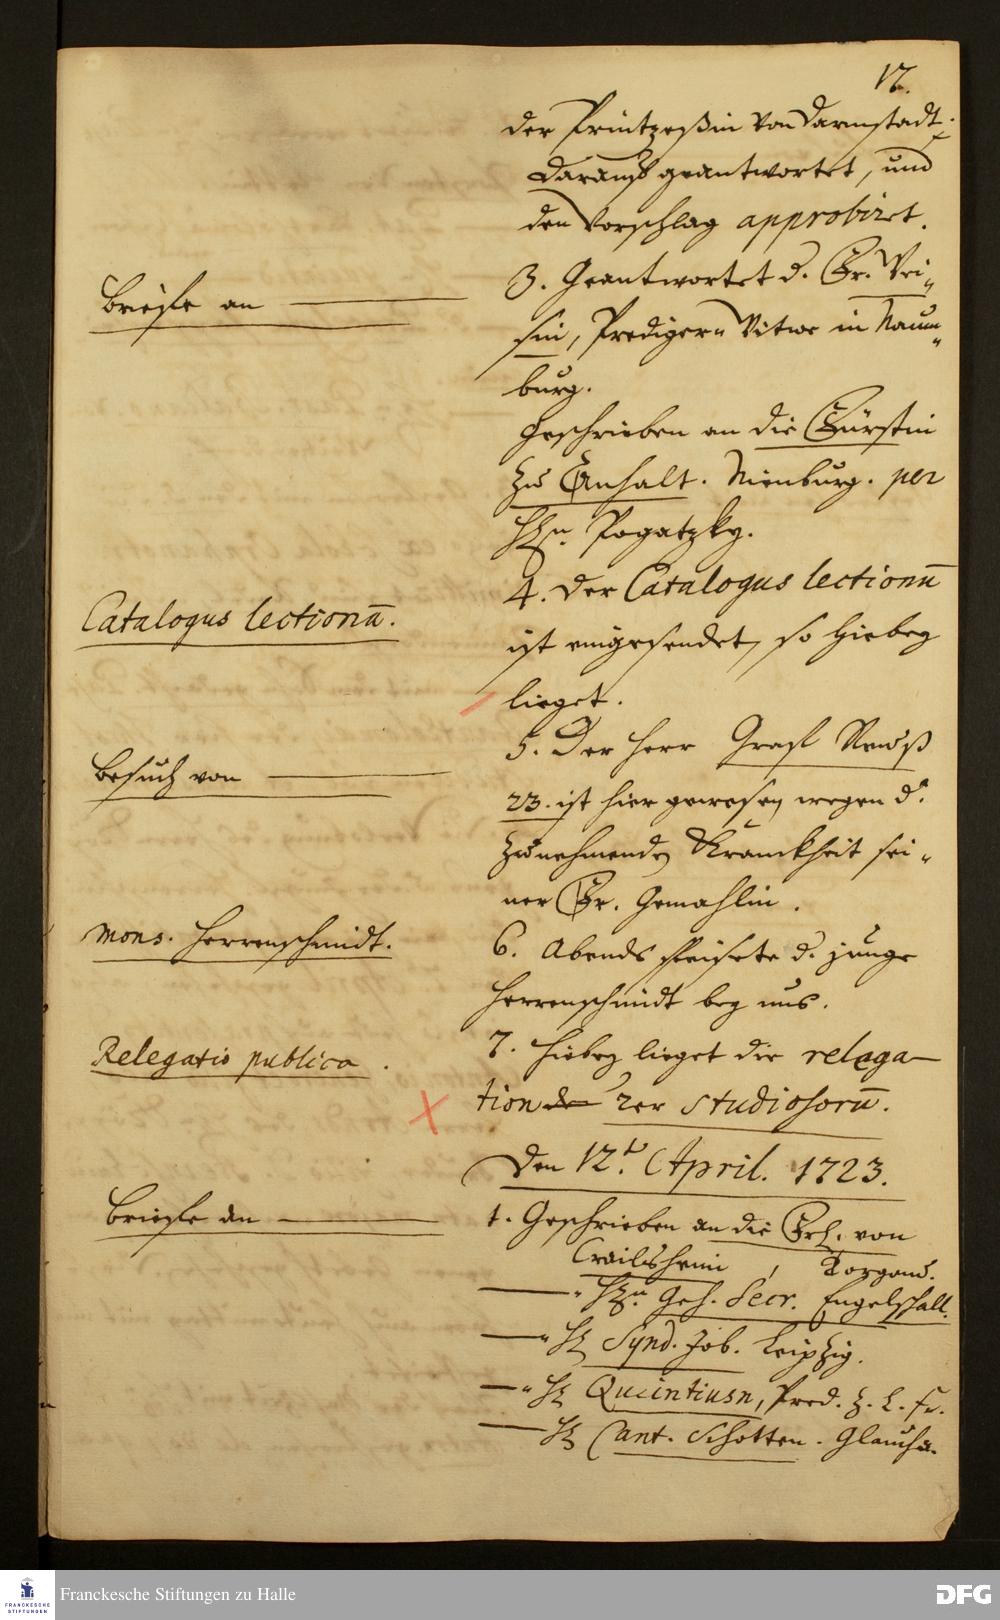 12.
der Printzeßin von Darmstadt
darauf geantwortet, und
den Vorschlag approbiret.
Briefe an
3. Geantwortet d. Fr. Vei„
sin, Predigers Witwe in Naum„
burg.
Geschrieben an die Fürstin
zu Anhalt. Nienburg. per
Hn. Pogatzky.
Catalogus lectionū.
4. Der Catalogus lectionū
ist eingesendet, so hiebey
lieget.
Besuch von
5. Der Herr Graff Reuß
23. ist hier gewesen wegen d.
zunehmenden Kranckheit sei„
ner Fr. Gemahlin.
Mons. Herrenschmidt.
6. Abends speisete d. junge
Herrenschmidt bey uns.
Relegatio publica.
7. Hiebey lieget die relega
tion 2er Studiosorū.
Den 12.t April. 1723.
Briefe an
1. Geschrieben an die Frl. von
Crailsheim, Torgau.
Hn. Geh. Secr. Engelschall.
H Synd. Job. Leipzig.
H Quintiusn, Pred. z. L. Fr.
H Cant. Schotten. Glaucha.
Franckesche Stiftungen zu Halle
DFG
FRANCKESCHE
STIFTUNGEN